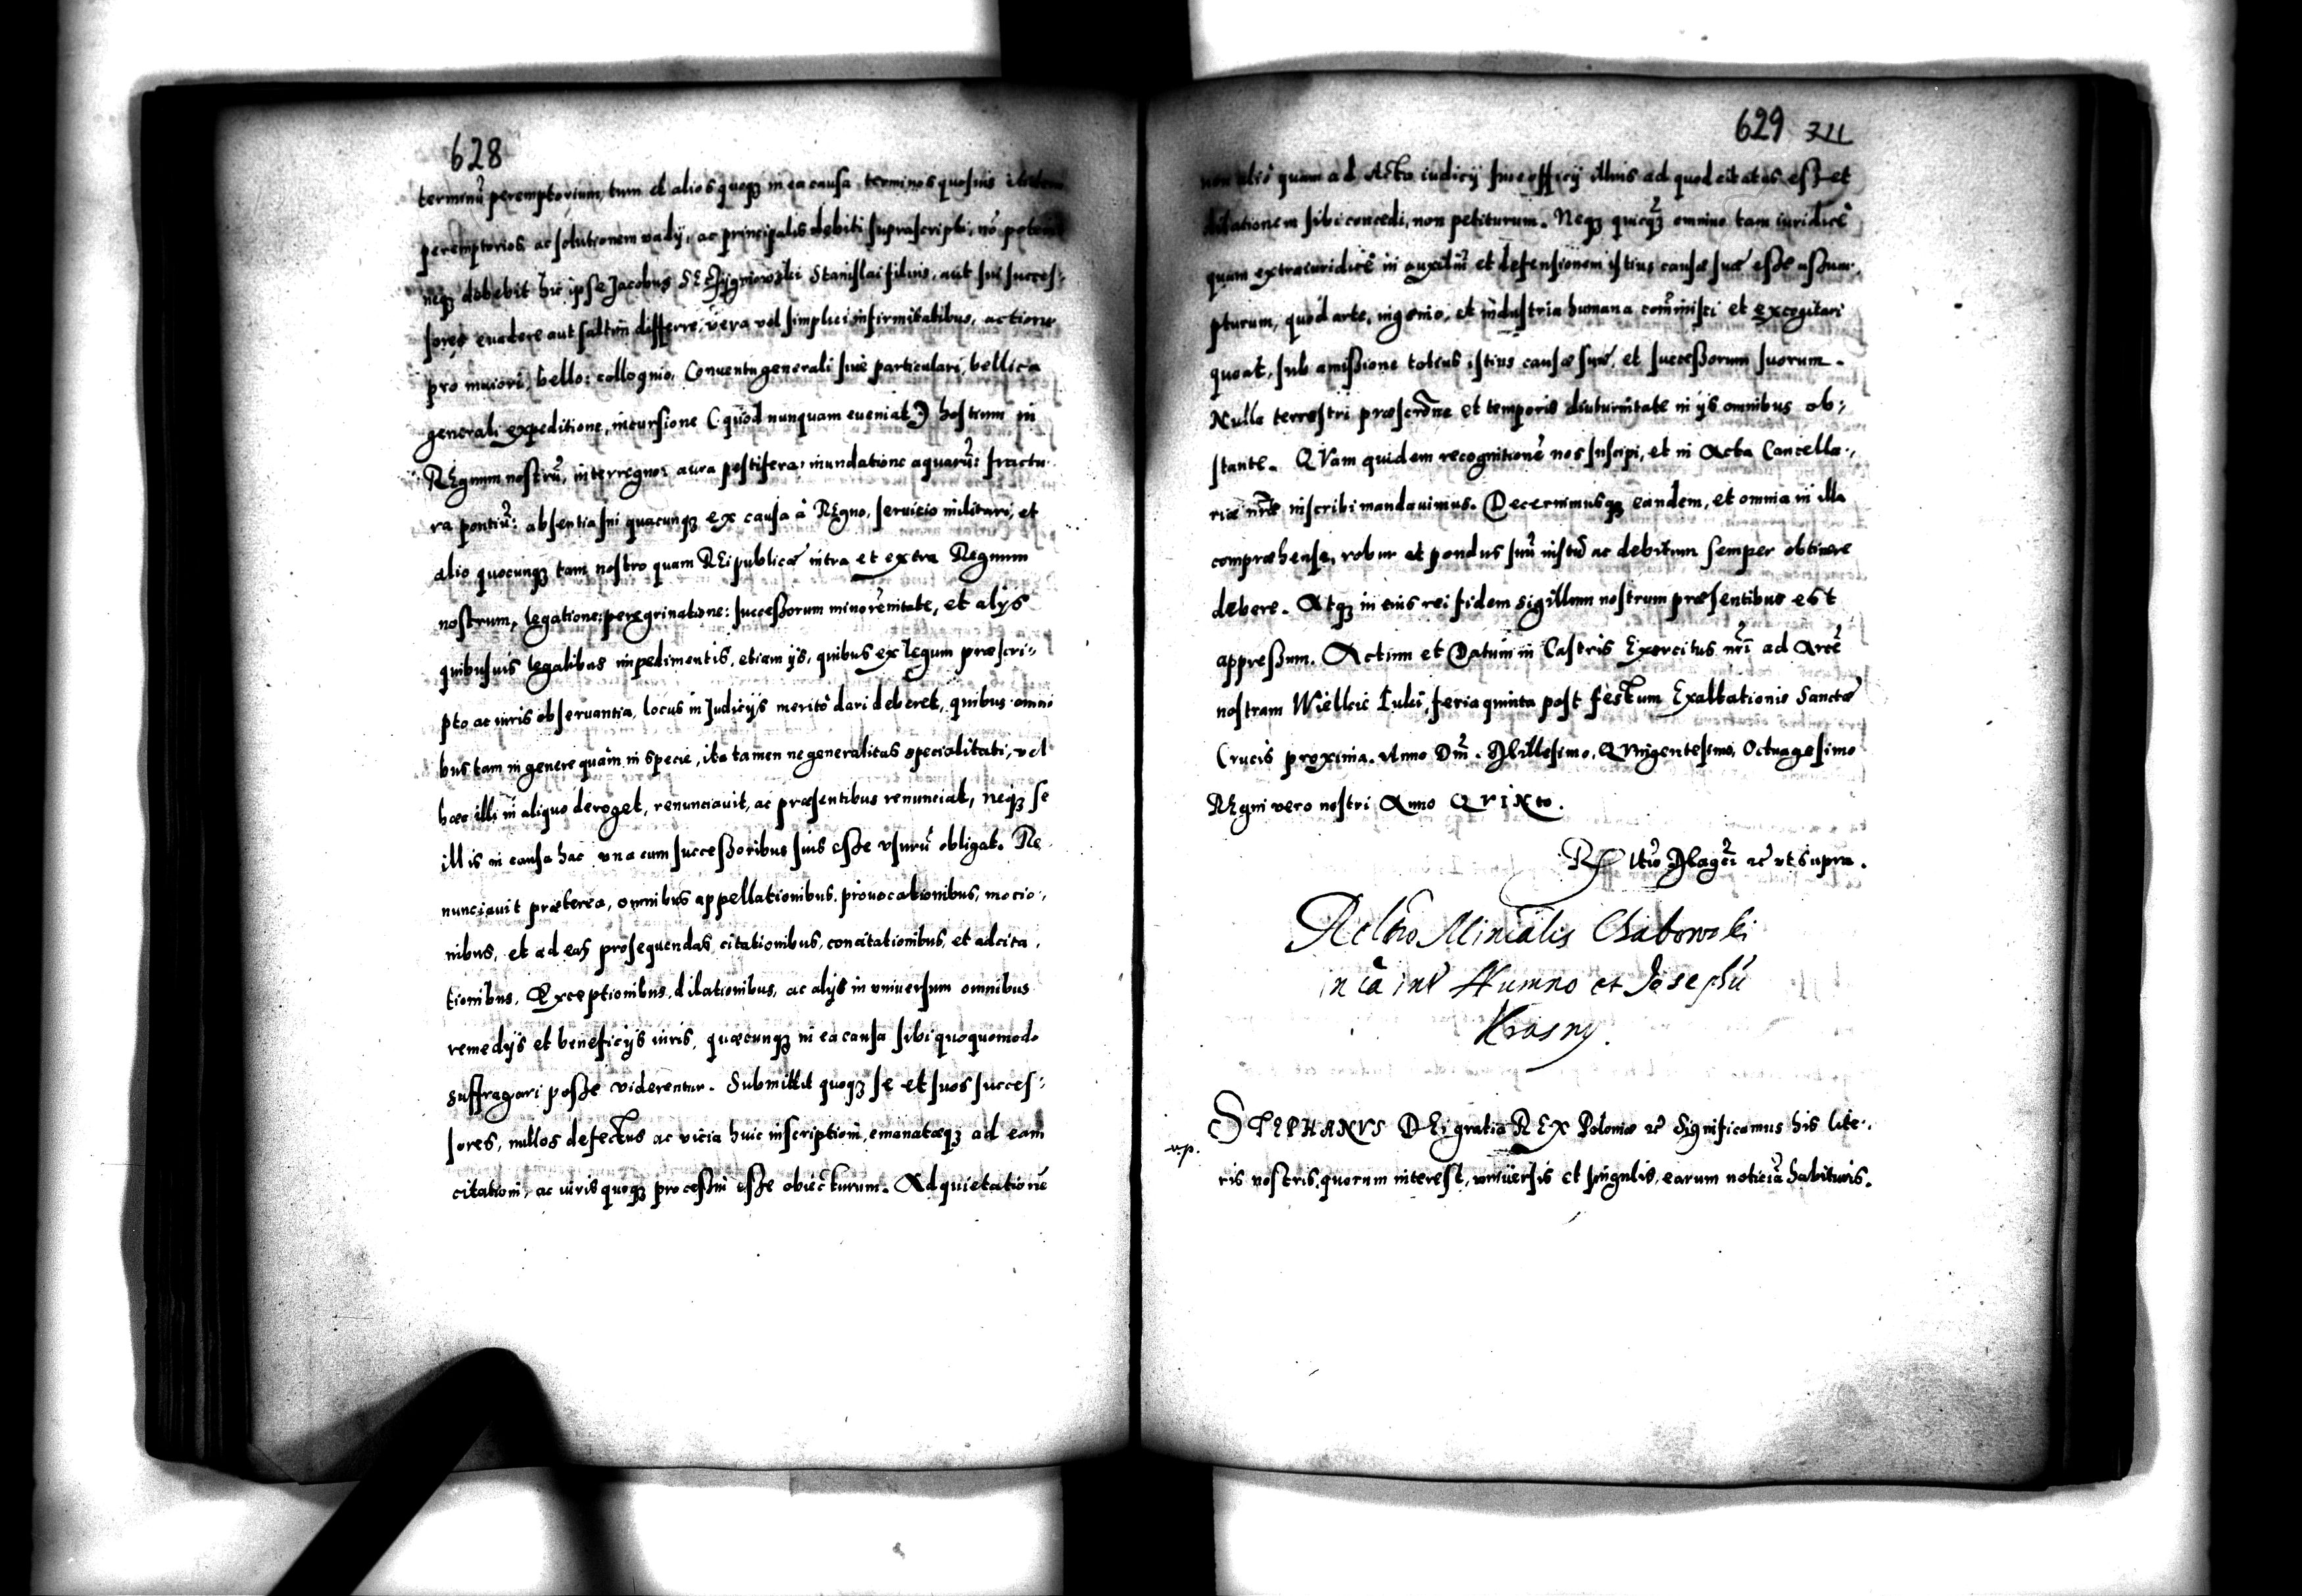 628
terminũ peremptorium, tum et alios quoqꝫ in ea causa terminos quosuis
peremptorios ac solutionem vadij, ac principalis debiti suprascripti, nõ
neqꝫ debebit hic ipse Jacobus Stanislai filius, aut sui succes-
sores euadere aut saltim differre, vera vel simplici infirmitatibus, actione
pro maiori, bello: colloquio, Conuentu generali siue particulari, bellica
generali expeditione, incursione (quòd nunquam eueniat) hostium in
REgnum nostrũ, interregno: aura pestifera: inundatione aquarũ: fractu-
ra pontiũ: absentia sui quacunqꝫ ex causa à REgno, seruicio militari, et
alio quocunqꝫ tam nostro quam REipublicæ intra et extra Regnum
nostrum, legatione: peregrinatione: successorum minorẽnitate, et alijs
quibusuis legalibus impedimentis, etiam ijs, quibus ex legum præscri-
pto ac iuris obseruantia, locus in Judicijs meritò dari deberet, quibus omni
bus tam in genere quàm in specie, ita tamen ne generalitas specialitati, vel
hæc illi in aliquo deroget, renunciauit, ac præsentibus renunciat, neqꝫ se
illis in causa hac vna cum successoribus suis esse vsurũ obligat. Re-
nunciauit præterea, omnibus appellationibus, prouocationibus, mocio-
nibus, et ad eas prosequendas citationibus, concitationibus, et adcita-
tionibus, Exceptionibus, dilationibus, ac alijs in vniuersum omnibus
remedijs et beneficijs iuris, quæcunqꝫ in ea causa sibi quoquomodo
suffragari posse viderentur. Submittit quoqꝫ se et suos succes-
sores, nullos defectus ac vicia huic inscriptioni, emanatæqꝫ ad eam
citationi, ac iuris quoqꝫ processui esse obiecturum. Ad quietationẽ
629
non aliò quam ad Acta iudicij siue officij illius ad quod citatus est et
dilationem sibi concedi, non petiturum. Neqꝫ quicqꝫ omnino tam iuridicè
quam extraiuridicè in auxiliũ et defensionem istius causæ suæ esse assum-
pturum, quod arte, ingenio, et industria humana com̃inisci et excogitari
queat, sub amissione totius istius causæ suæ, et successorum suorum.
Nulla terrestri præscrõne et temporis diuturnitate in ijs omnibus ob-
stante. QVam quidem recognitionẽ nos suscipi, et in Acta Cancella-
riæ nr̃æ inscribi mandauimus. Decernimusqꝫ eandem, et omnia in illa
compræhensa, robur et pondus suũ iustũ ac debitum semper obtinere
debere. Atqꝫ in eius rei fidem sigillum nostrum præsentibus est
appressum. Actum et Datum in Castris Exercitus nr̃i ad Arcẽ
nostram Wielkie Luki, feria quinta post festum Exaltationis Sanctæ
Crucis proxima. Anno Dñi. Millesimo, QVingentesimo, Octuagesimo
REgni vero nostri Anno QVINto.
Magci ut supra.
Relatio Min̄ialis Chabowski
in cã int Humno et Josephũ
Krasny.
STEPHANVS DEi gratia REX Poloniæ Significamus his lite-
ris nostris, quorum interest, vniuersis et singulis, earum noticiã habituris.